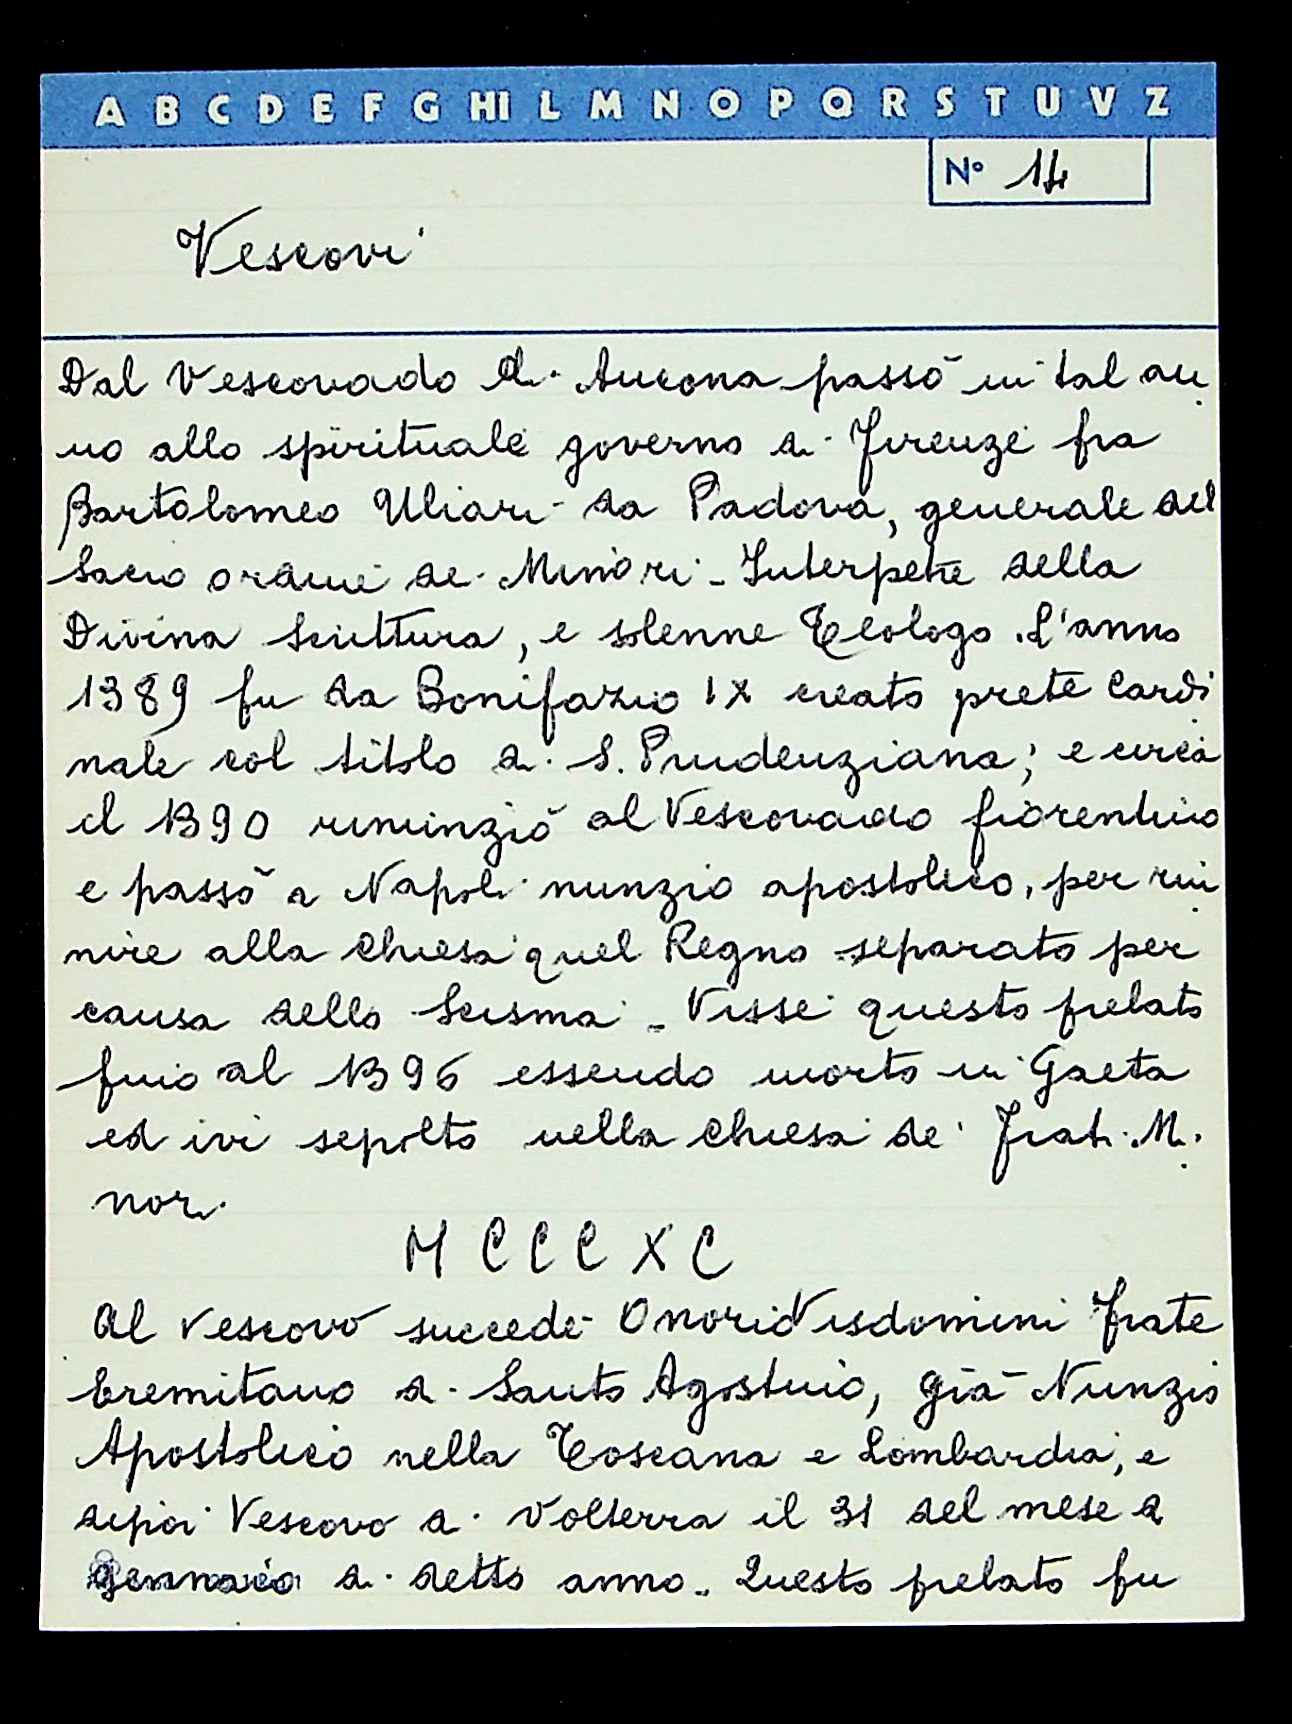 A B C D E F G HI L M N O P Q R S T U V Z
N° 14
Vescovi
Dal Vescovado di Ancona passò in tal an
no allo spirituale governo di Firenze fra
Bartolomeo Uliari da Padova, generale del
Sacro ordine de Minori - Interpete della
Divina Scrittura, e solenne Teologo. L'anno
1389 fu da Bonifazio IX creato prete Cardi
nale col titolo di S. Prudenziana; e circa
il 1390 rinunziò al Vescovado fiorentino
e passò a Napoli nunzio apostolico, per riu
nire alla Chiesa quel Regno separato per
causa dello Scisma - Visse questo prelato
fino al 1396 essendo morto in Gaeta
ed ivi sepolto nella Chiesa de' Frati Mi
nori
MCCCXC
Al Vescovo succede Onori Visdomini Frate
Eremitano di Santo Agostino, già Nunzio
Apostolico nella Toscana e Lombardia, e
dipoi Vescovo di Volterra il 31 del mese di
gennaio di detto anno - Questo prelato fu